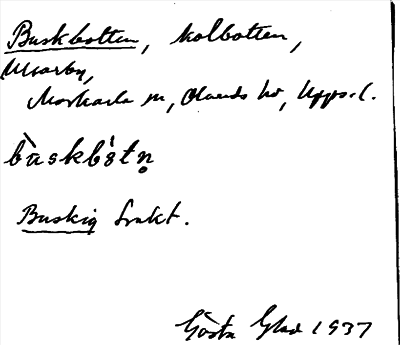 Buskbotten, kolbotten,
Ularby,
Morkarla sn, Olands hd, Upps. l.
bùskbótn̥
Buskig trakt.
Gösta Glad 1937